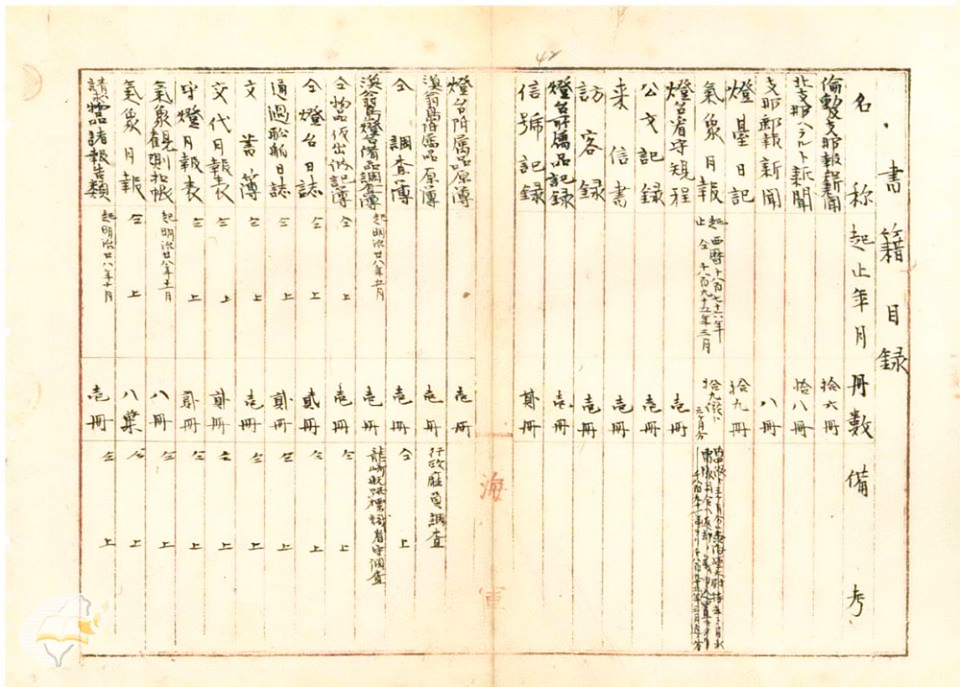 書籍目録
名称 起止年月 冊数 備考
倫敦支那報新聞 拾六冊
北支那ヘラルト新聞 拾八冊
支那郵報新聞 八冊
燈臺日記 拾九冊
氣象月報 起西暦千八百七十六年 止仝千八百九十五年三月
燈台看守規程 壱冊
公文記録 壱冊
来信書 壱冊
訪客録 壱冊
燈台附属品記録 壱冊
信號記録 貳冊
燈台附属品原簿 壱冊
漁翁島附属品原簿 壱冊 行政廰員調査
仝 調査簿 壱冊 仝上
漁翁島燈台備品調査簿 起明治廿八年五月 壱冊
仝物品仮出納記簿 仝上 壱冊 仝上
仝燈台日誌 仝上 貳冊 仝上
通過船舶日誌 仝上 貳冊 仝上
文書簿 仝上 壱冊 仝上
交代月報表 仝上 貳冊 仝上
守燈月報表 仝上 貳冊 仝上
氣象觀測扣帳 起明治廿八年五月 八冊 仝上
氣象月報 仝上 八葉 仝上
請求物品諸報告類 起明治廿八年十月 壱冊 仝上
海軍